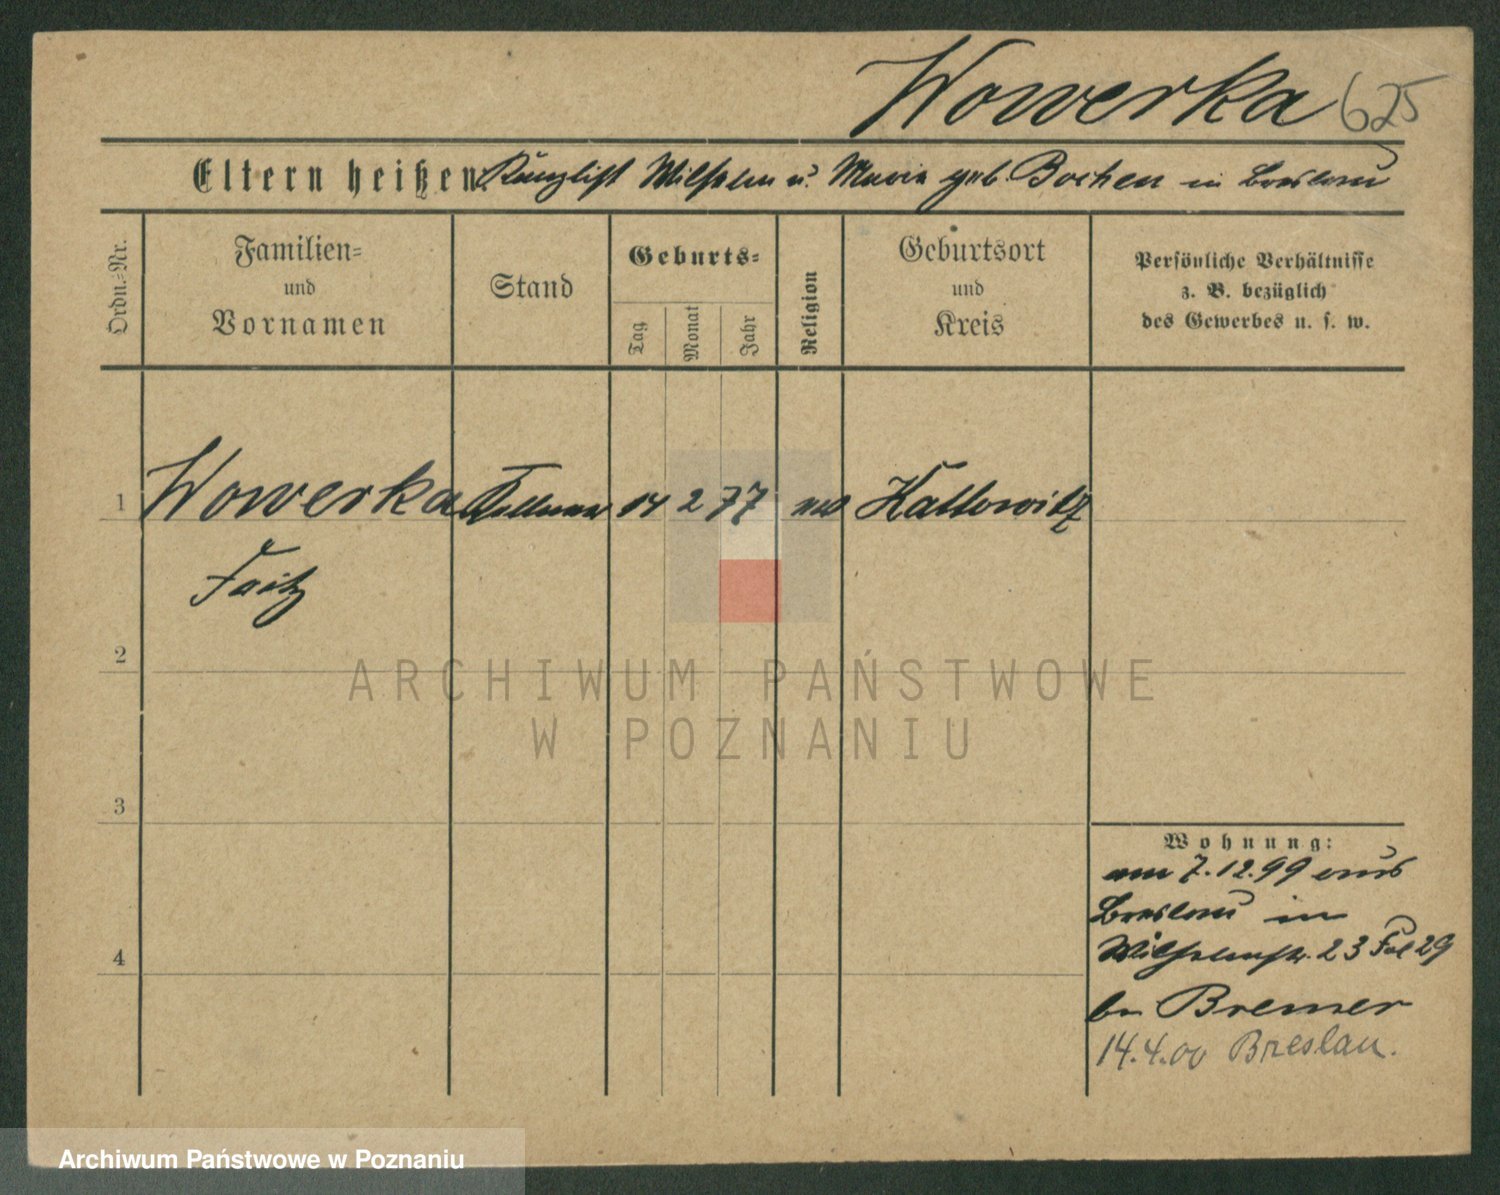 Wowerka 625
Eltern heißen Kanzlist Wilhelm u. Marie geb. Bochen in Breslau
Ordn.-Nr.
Familien-
und
Vornamen
Stand
Geburts-
Tag
Monat
Jahr
Religion
Geburtsort
und
Kreis
Persönliche Verhältnisse
z. B. bezüglich
des Gewerbes u. s. w.
1 Wowerka Kellner 14 2 77 Kattowitz
Fritz
2
3
4
Wohnung:
am 7.12.99 aus
Breslau in
Wilhelmstr. 23
bei Bremer
14.4.00 Breslau.
ARCHIWUM PAŃSTWOWE
W POZNANIU
Archiwum Państwowe w Poznaniu